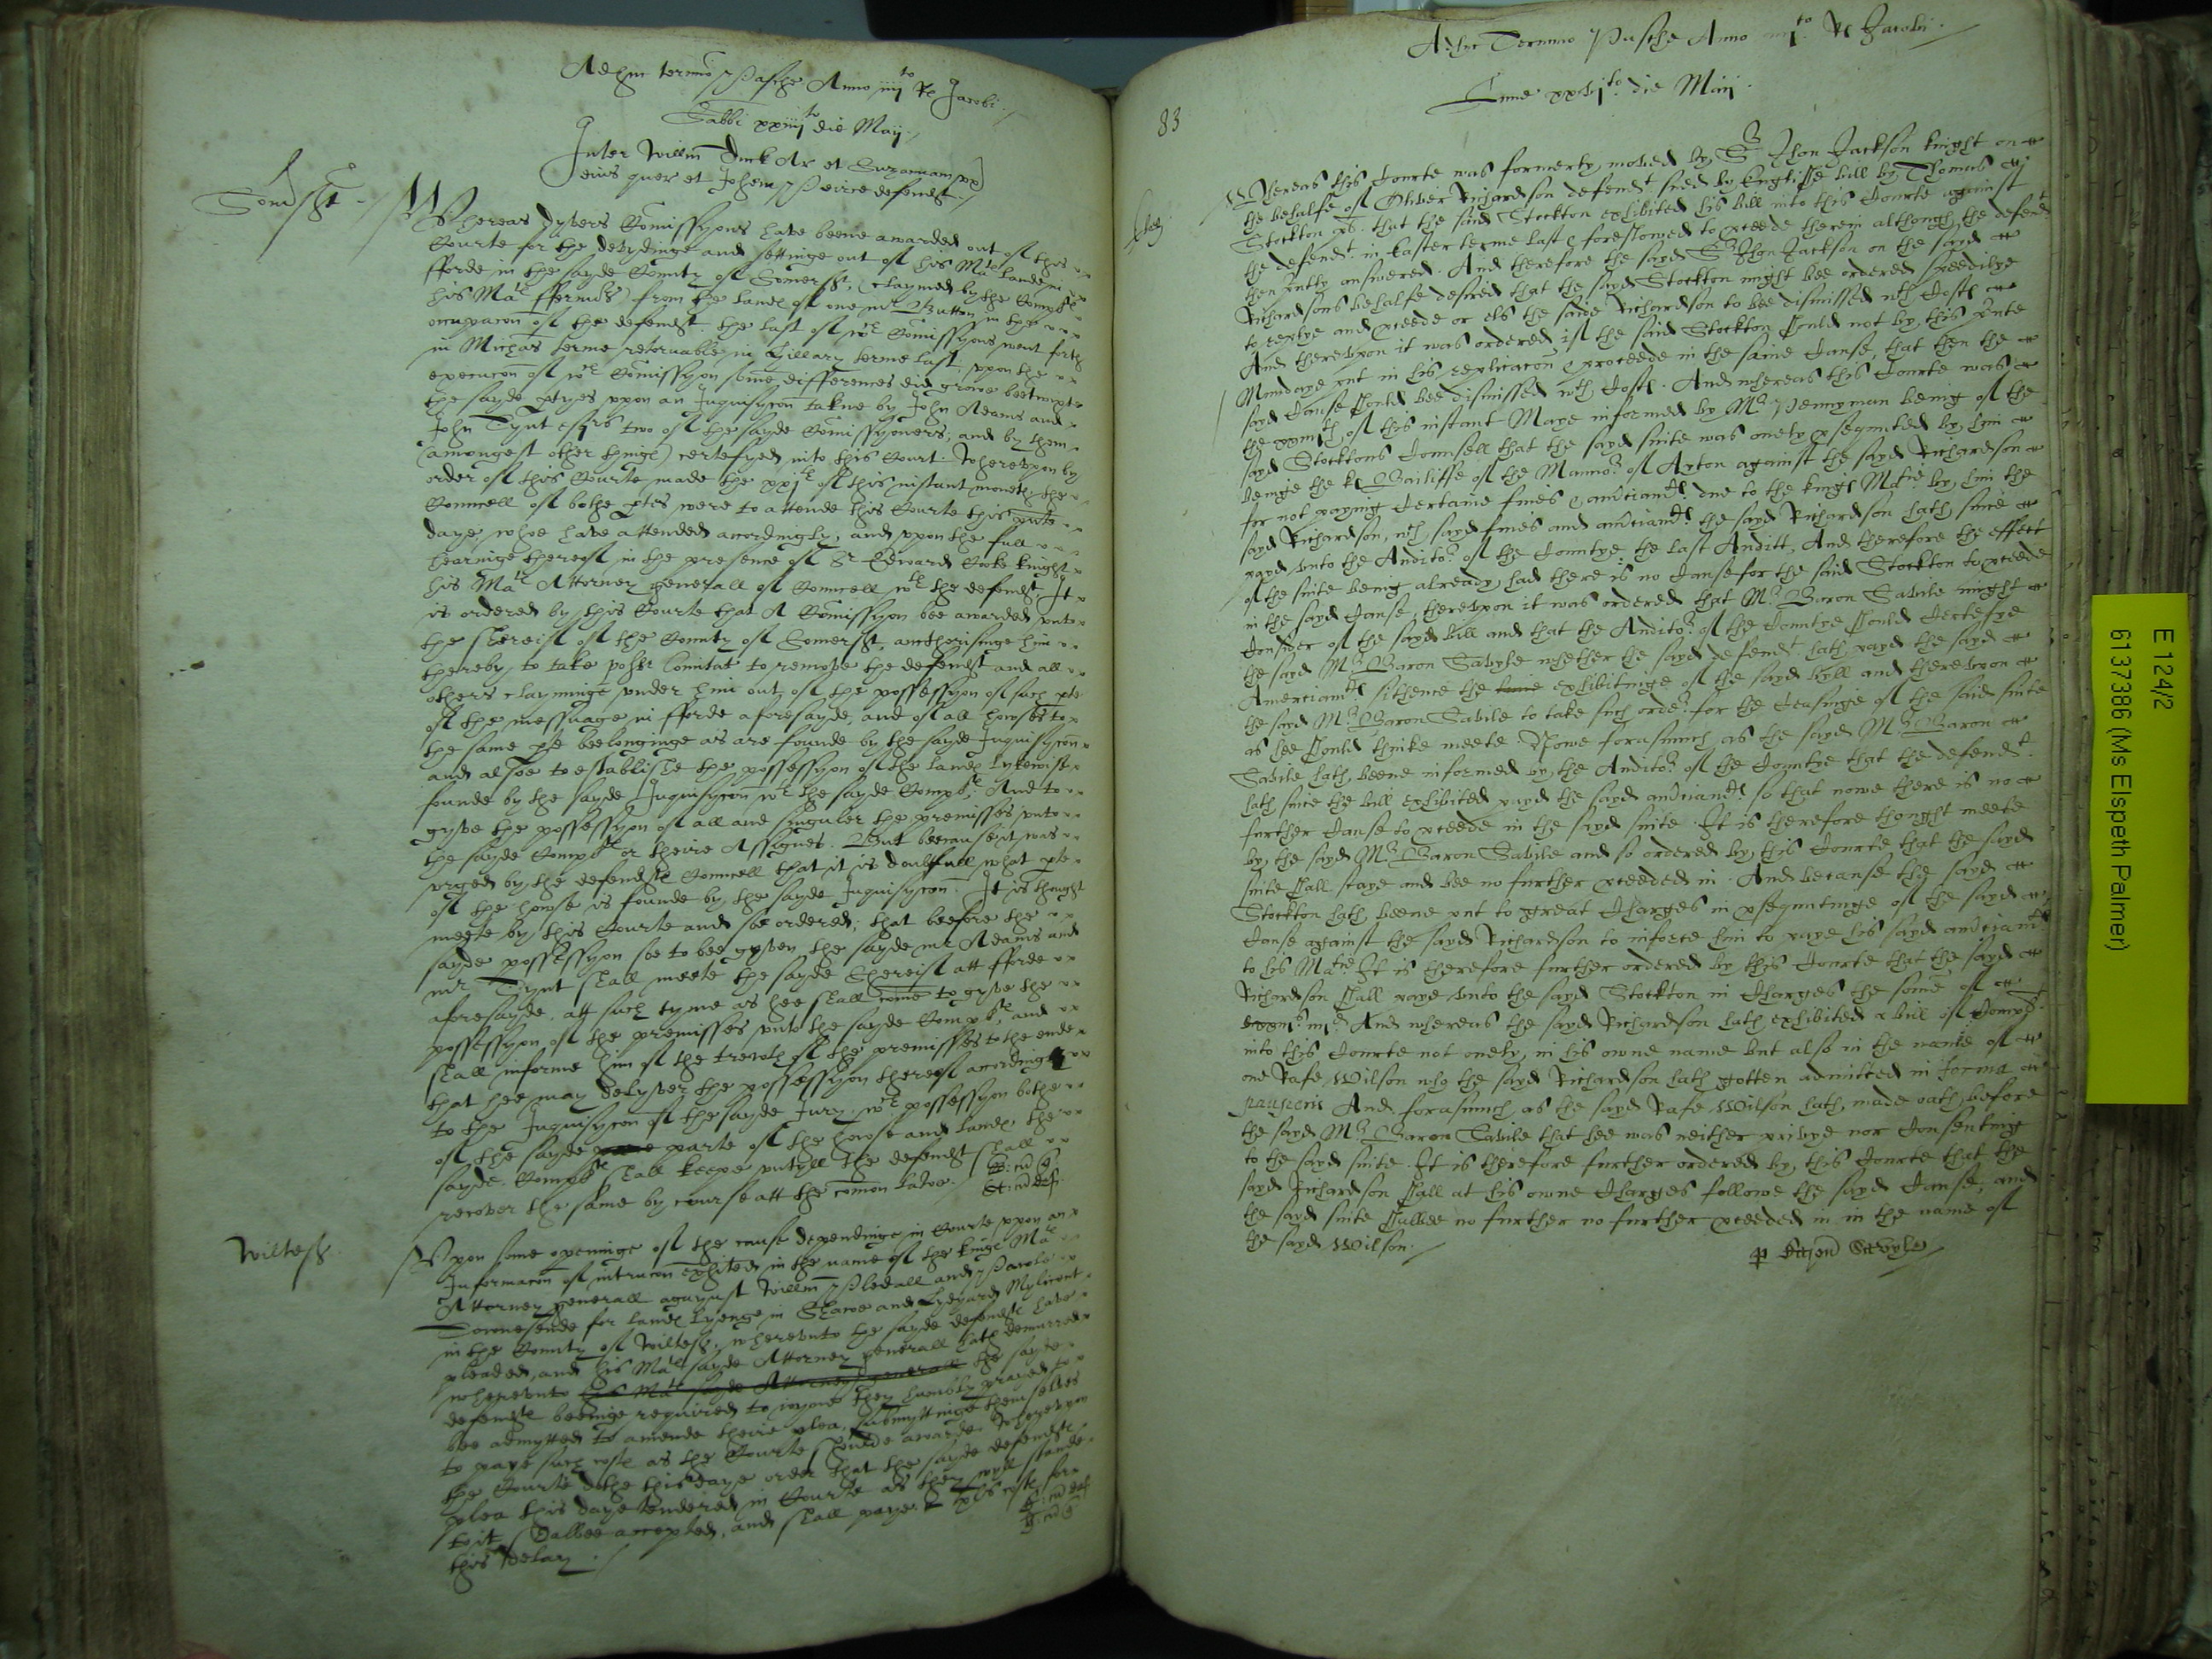 Adhuc termio Pasche Anno iiijto Rs Jacobi
Sabbi xxiiijto die Maij
Inter Willm Duck Ar et Suzannam ux
eius quer et Johem Peirce defendt
Somsett
Whereas dyvers Comissyons have beene awarded out of this
Courte for the devydinge and settinge out of his Mats landes in
fforde in the sayde County of Somersett, (claymed by the Complts
his Mats ffermors) from the landes of one mr Button in the
occupacon of the defendt. the last of wch Comissyons went forth
in Michas terme retornable in Hillary terme last, uppon the
execucon of wch Comissyon some differences did growe beetwixte
the sayde ptyes uppon an Inquisycon taken by John Adams and
John Tynt esqrs two of the sayde Comissyoners, and by them
(amongest other thinges) certefyed into this Court. Whereuppon by
order of this Courte made the xxjth of this instant moneth the
Councell of bothe ptes were to attende this Courte this pnte
daye, whoe have attended accordingly, and uppon the full
hearinge thereof in the presence of Sr Edward Cooke knight
his Mats Attorney generall of Councell wth the defendt. It
is ordered by this Courte that A Comissyon bee awarded unto
the Shereif of the County of Somersett, authorisinge him
thereby to take posse Comitat to remove the defendt and all
others clayminge under him out of the possessyon of such pte
of the messuage in fforde aforesayde, and of all howses to
the same pte beelonginge as are founde by the sayde Inquisycon
and alsoe to establishe the possessyon of the landes lykewise
founde by the sayde Inquisycon wth the sayde Complts. And to
gyve the possessyon of all and singuler the premisses unto
the sayde Complts or theire Assignes. But because it was
urged by the defendts Councell that it is doubtfull what pte
of the howse is founde by the sayde Inquisycon. It is thought
meete by this Courte and soe ordered, that beefore the
sayde possessyon soe to bee gyven the sayde mr Adams and
mr Tynt shall meete the sayde Shereif att fforde
aforesayde, att such tyme as hee shall come to gyve the
possessyon of the premisses unto the sayde Complts, and
shall informe him of the trewth of the premisses to the ende
that hee may delyver the possessyon thereof accordinge
to the Inquisycon of the sayde Jury. wch possessyon bothe
of the sayde parte of the howse and landes the
sayde Complts shall keepe untyll the defendt shall
recover the same by course att the comon Lawe.
Wiltesh
Uppon some openinge of the cause dependinge in Courte uppon an
Informacon of intrucon exhited in the name of the kinges Mats
Attorney generall agaynst Willm Pledall and
Townesende for landes lyenge in Shawe and Lydyard Mylicent
in the County of Wiltesh, whereunto the sayde defendts have
pleaded, and his Mats sayde Attorney generall hath demurred
whereunto his Mats sayde Attorney generall the sayde
defendts beeinge required to joyne they humbly prayed to
bee admytted to amende theire plea, submyttinge themselves
to paye such costes as the Courte shoulde awarde. Whereuppon
the Courte dothe this daye order that the sayde defendts
plea this daye tendered in Courte as they wyll stande
to it, shalbee accepted, and shall paye xls costes for
this delay.
83
Adhuc Termino Pasche Anno iiijto Rs Jacobi
Lune xxvjto die Maij
Ebor
Whereas this Courte was formerly moved by Sr Jhon Jackson knight on
the behalfe of Oliver Richardson defendt sued by Englishe bill by Thomas
Stockton pt. that the said Stockton exhibited his bill into this Courte against
the defendt in Easter terme last & foreslowed to pceede therein although the defendt
then putly answered. And therefore the sayd Sr Jhon Jackson on the sayd
Richardsons behalfe desired that the sayd Stockton might bee ordered speedilye
to replye and pceede or els the said Richardson to bee dismissed wth Costes
And thereupon it was ordered if the said Stockton should not by this pnte
Mundaye put in his replicacon & proceede in the same Cause, that then the
sayd Cause should bee dismissed wth Costes. And whereas this Courte was
the xxiijth of this instant Maye informed by Mr Pennyman being of the
sayd Stocktons Counsell that the sayd suite was onely psequuted by him
beinge the ks Bailiffe of the Mannor of Ayton against the sayd Richardson
for not paying Certaine fines & amciamts due to the kings Matie by him the
sayd Richardson, wch sayd fines and amciamts the sayd Richardson hath since
payd unto the Auditor of the Countye the last Auditt, And therefore the effect
of the suite being already had there is no Cause for the said Stockton to pceede
in the sayd Cause, thereupon it was ordered that Mr Baron Savile might
Consider of the sayd bill and that the Auditor of the Countye should Certefye
the sayd Mr Baron Savyle whether the sayd defendt hath payd the sayd
Amerciamts sithence the exhibitinge of the sayd byll and thereupon
the sayd Mr Baron Savile to take such order for the Ceasinge of the said suite
as hee should thinke meete. Nowe forasmuch as the sayd Mr Baron
Savile hath beene informed by the Auditor of the Countye that the defendt
hath since the bill exhibited payd the sayd amciamts so that nowe there is no
further Cause to pceede in the sayd suite. It is therefore thought meete
by the sayd Mr Baron Savile and so ordered by this Courte that the sayd
suite shall staye and bee no further pceeded in. And because the sayd
Stockton hath beene put to great Charges in psequutinge of the sayd
Cause against the sayd Richardson to inforce him to paye his sayd amciamts
to his Matie It is therefore further ordered by this Courte that the sayd
Richardson shall paye unto the sayd Stockton in Charges the some of
And whereas the sayd Richardson hath exhibited a bill of Complt
into this Courte not onely in his owne name but also in the name of
one Rafe Wilson who the sayd Richardson hath gotten admitted in forma
pauperis And forasmuch as the sayd Rafe Wilson hath made oath before
the sayd Mr Baron Savile that hee was neither privye nor Consenting
to the sayd suite. It is therefore further ordered by this Courte that the
sayd Richardson shall at his owne Charges followe the sayd Cause, and
the sayd suite shalbee no further no further pceeded in in the name of
the sayd Wilson.
E 124/2
6137386 (Ms Elspeth Palmer)